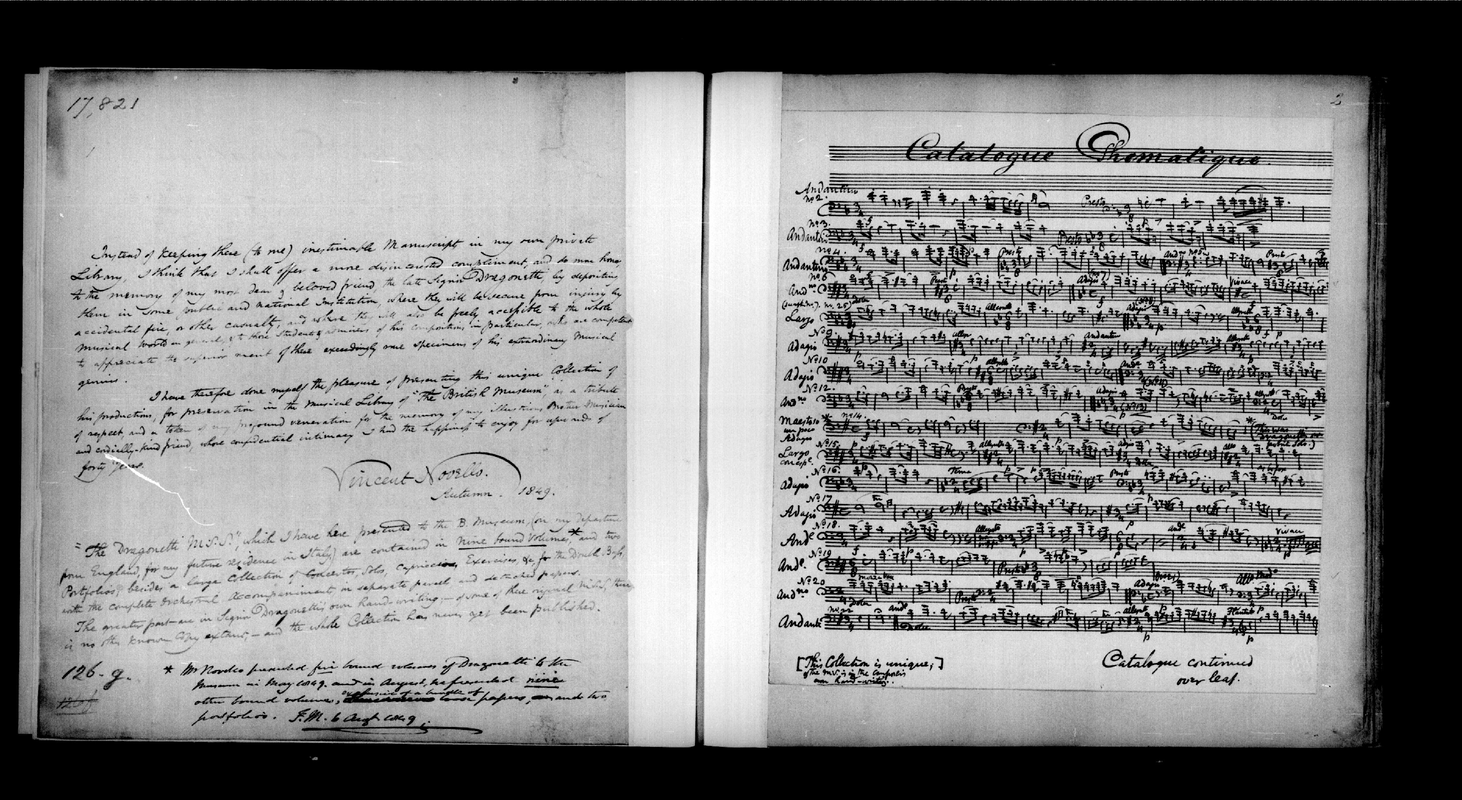 17,821
Instead of keeping these (to me) inestimable Manuscript in my own private
Library, I think that I shall offer a more disinterested compliment, and do more honor
to the memory of my most dear & beloved friend, the late Signor Dragonetti by depositing
them in some public and national Institution where they will be secure from injury by
accidental fire, or other casualty; and where they will also be freely accessible to the whole
musical World in general, & to those students & admirers of his compositions in particular, who are competent
to appreciate the superior merit of these exceedingly rare specimens of his extraordinary musical
genius.
I have therefore done myself the pleasure of presenting this unique Collection of
his productions, for preservation in the Musical Library of "the British Museum" as a tribute
of respect, and a token of my profound veneration for the memory of my Brother Musician
and cordially-kind friend, whose confidential intimacy I had the happiness to enjoy for upwards of
forty years.
Vincent Novello.
Autumn. 1849.
"The Dragonetti M.S.S", which I have here presented to the B Museum, (on my departure
from England, for my future residence in Italy) are contained in nine bound Volumes,* and two
Portfolios; besides a large Collection of Concertos, Solos, Capriccios, Exercises &c for the Double-Bass
with the complete Orchestral Accompaniment, in separate parcell and detached papers.
The greater part are in Signor Dragonetti's own hand-writing — of some of these original M.S.S. there
is no other known Copy extant, — and the whole Collection has never yet been published.
126. g.
* Mr Novello presented five bound volumes of Dragonetti to the
Museum in May 1849. and in August, he presented nine
other bound volumes, a bundle of loose papers, and two
portfolios. F.M. 6 Augt 1849.
2
Catalogue Thematique
Andantino
No 2.
Presto
No 3.
Andantino
No 4.
Andantino
And no No 5
No 6
And no
Largo
Allegretto
No 9.
Adagio
Andante
No 10
Adagio
No 12
And no
Maestoso
No 14.
un poco
Adagio
No 15.
Largo
No 16.
Adagio
No 17
Adagio
No 18.
And e.
Vivace
No 19
And e.
No 20
And no
No 22
Andante
[This Collection is unique;]
the M.S. is in the Composer's
own hand-writing.
Catalogue continued
over leaf.